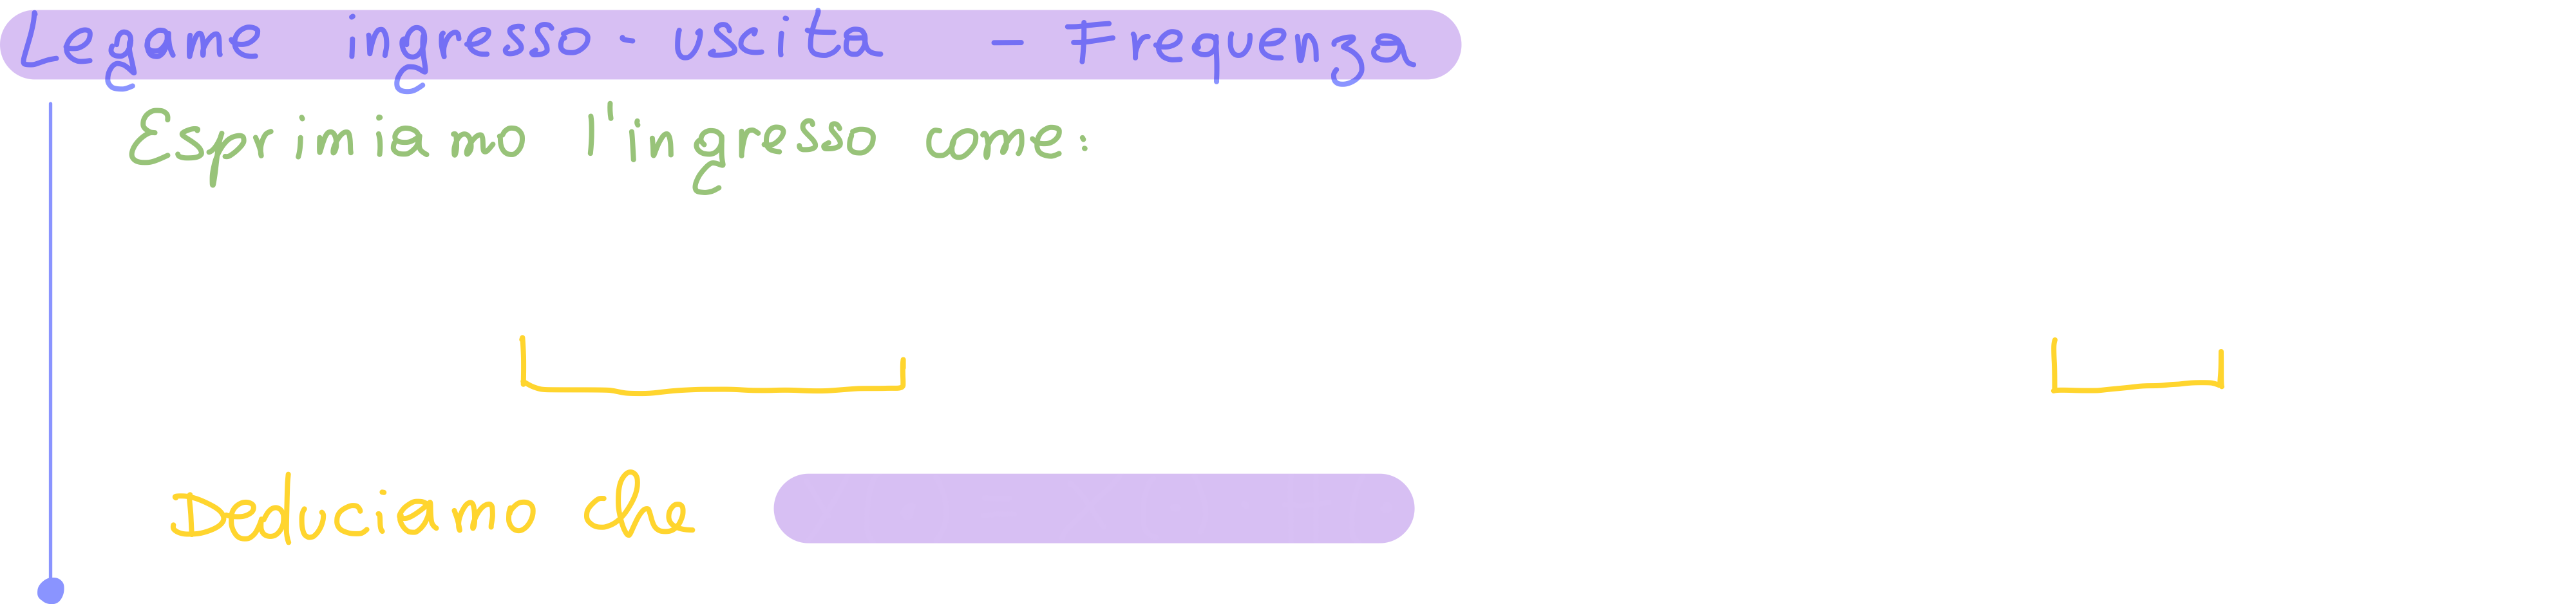 Legame ingresso - uscita - Frequenza
Esprimiamo l'ingresso come:
Deduciamo che